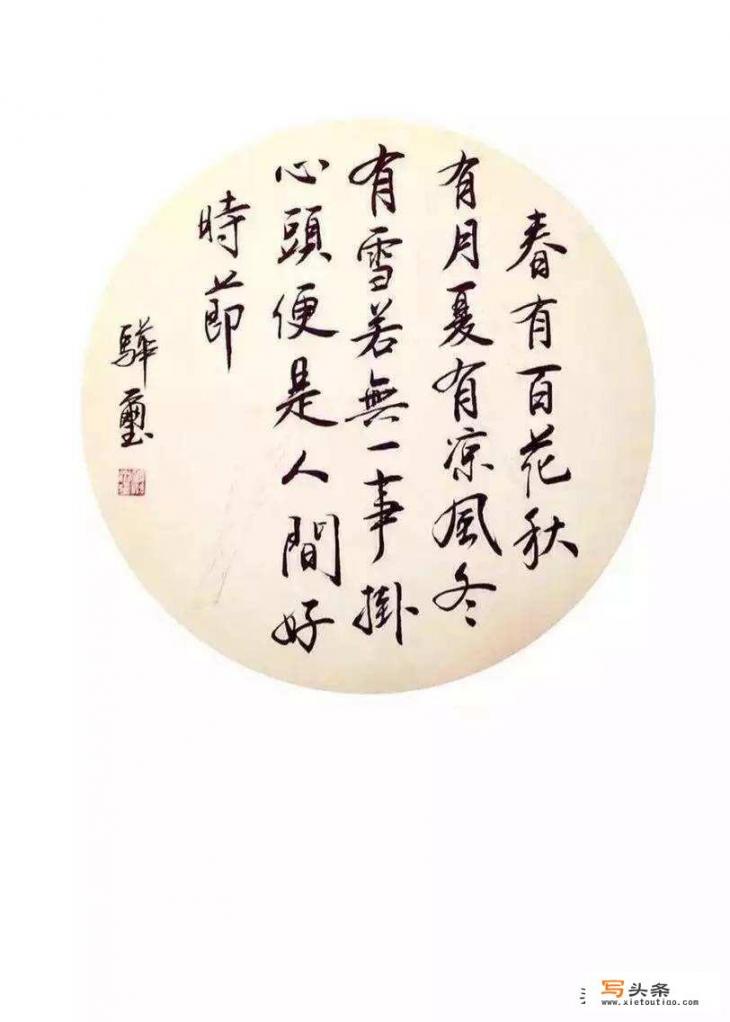 春有百花秋
有月夏有凉風冬
有雪若無一事掛
心頭便是人間好
時節
驊璽
写头条
www.xietoutiao.com